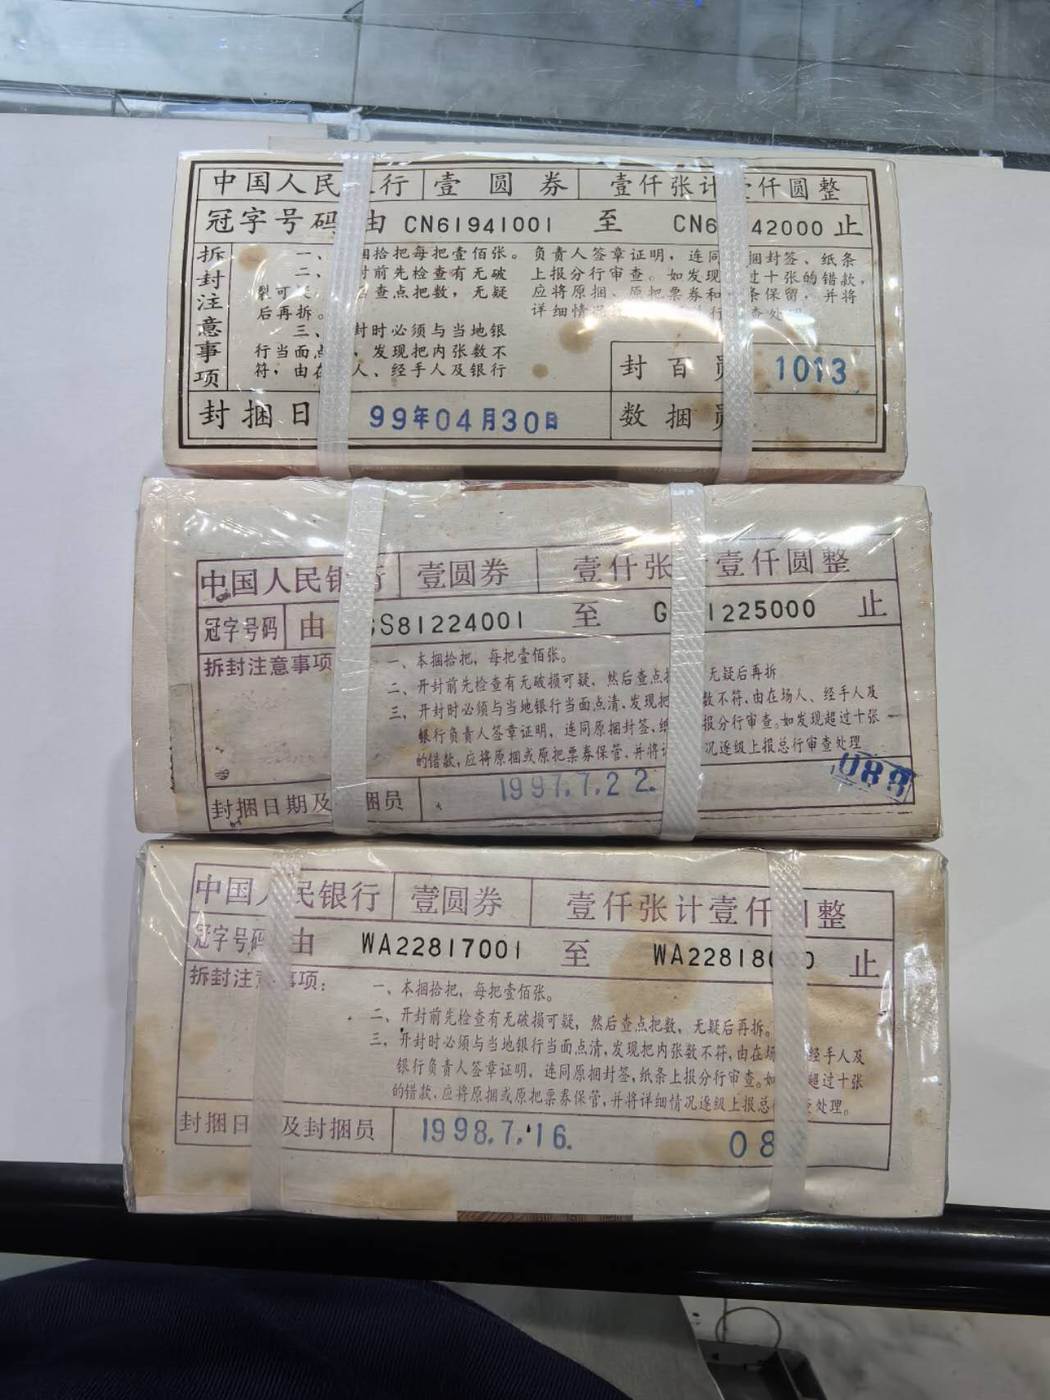 中国人民 行 壹圆券 壹仟张计壹仟圆整
冠字号码 由 CN61941001 至 CN6 42000 止
拆封注意事项
一、 捆拾把每把壹佰张。
二、 封前先检查有无破
裂可 查点把数，无疑
后再拆。
三、 封时必须与当地银
行当面点 ，发现把内张数不
符，由在 人、经手人及银行
负责人签章证明，连同 捆封签、纸条
上报分行审查。如发现 过十张的错款，
应将原捆、原把票券和 条保留，并将
详细情
封百员 1013
封捆日 99年04月30日 数捆员
中国人民银行 壹圆券 壹仟张计壹仟圆整
冠字号码 由 GS81224001 至 G 1225000 止
拆封注意事项
一、本捆拾把，每把壹佰张。
二、开封前先检查有无破损可疑，然后查点 无疑后再拆
三、开封时必须与当地银行当面点清、发现把 数不符，由在场人、经手人及
银行负责人签章证明，连同原捆封签，纸 报分行审查。如发现超过十张
的错款，应将原捆或原把票券保管、并将 况逐级上报总行审查处理
089
封捆日期及 捆员 1997.7.22.
中国人民银行 壹圆券 壹仟张计壹仟圆整
冠字号码 由 WA22817001 至 WA22818 0 止
拆封注意事项：
一、本捆拾把，每把壹佰张。
二、开封前先检查有无破损可疑，然后查点把数，无疑后再拆。
三、开封时必须与当地银行当面点清，发现把内张数不符，由在场 经手人及
银行负责人签章证明，连同原捆封签，纸条上报分行审查。如 超过十张
的错款，应将原捆或原把票券保管，并将详细情况逐级上报总 查处理。
封捆日 及封捆员 1998.7.16. 08